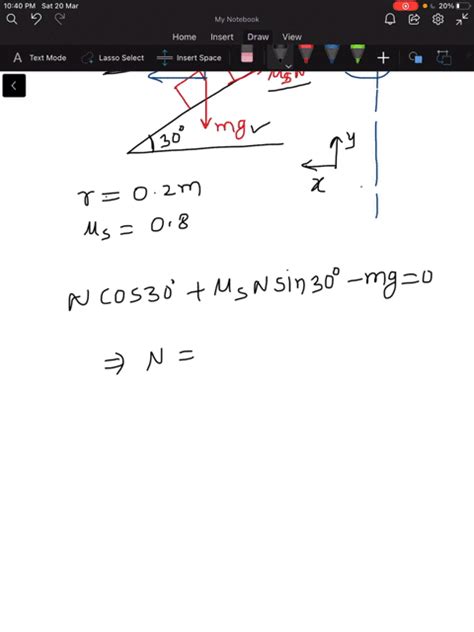 10:40 PM Sat 20 Mar
20%
My Notebook
Home Insert Draw View
Text Mode Lasso Select Insert Space
μsN
mg
30°
y
x
r = 0.2m
μs = 0.8
N cos30° + μsN sin30° - mg = 0
⇒ N =